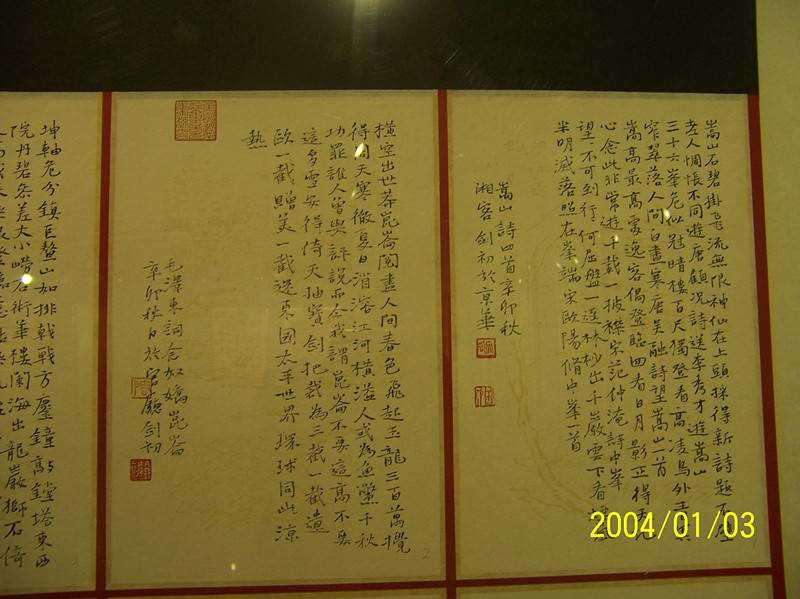 嵩山石碧掛飛流無限神仙在上頭採得新詩題石壁
老人惆悵不同遊唐顧況詩送李秀才遊嵩山
三十六峯危似冠晴樓百尺獨登看高凌鳥外青冥
窄翠落人間白晝寒唐吴融詩望嵩山一首
嵩高最高處逸客偶登臨四看日月影正得天元
心念此非常遊千載一披襟宋范仲淹詩中峯
望望不可到行行何屈盤一逕林杪出千岩雲下看
半明滅落照在峯端宋歐陽脩中峯一首
嵩山詩四首辛卯秋
湘客劍初於京華
橫空出世莽崑崙閱盡人間春色飛起玉龍三百萬攪
得周天寒徹夏日消溶江河橫溢人或為魚鱉千秋
功罪誰人曾與評說而今我謂崑崙不要這高不要
這多雪安得倚天抽寶劍把裁為三截一截遺
歐一截贈美一截還東國太平世界環球同此涼
熱
毛澤東詞念奴嬌崑崙
辛卯秋日於客廳劍初
坤軸危分鎮巨鰲山如排戟戰方鏖鐘高塔東西
院丹碧參差大小嶗石術華樓闌海出龍巖獅石倚
2004/01/03